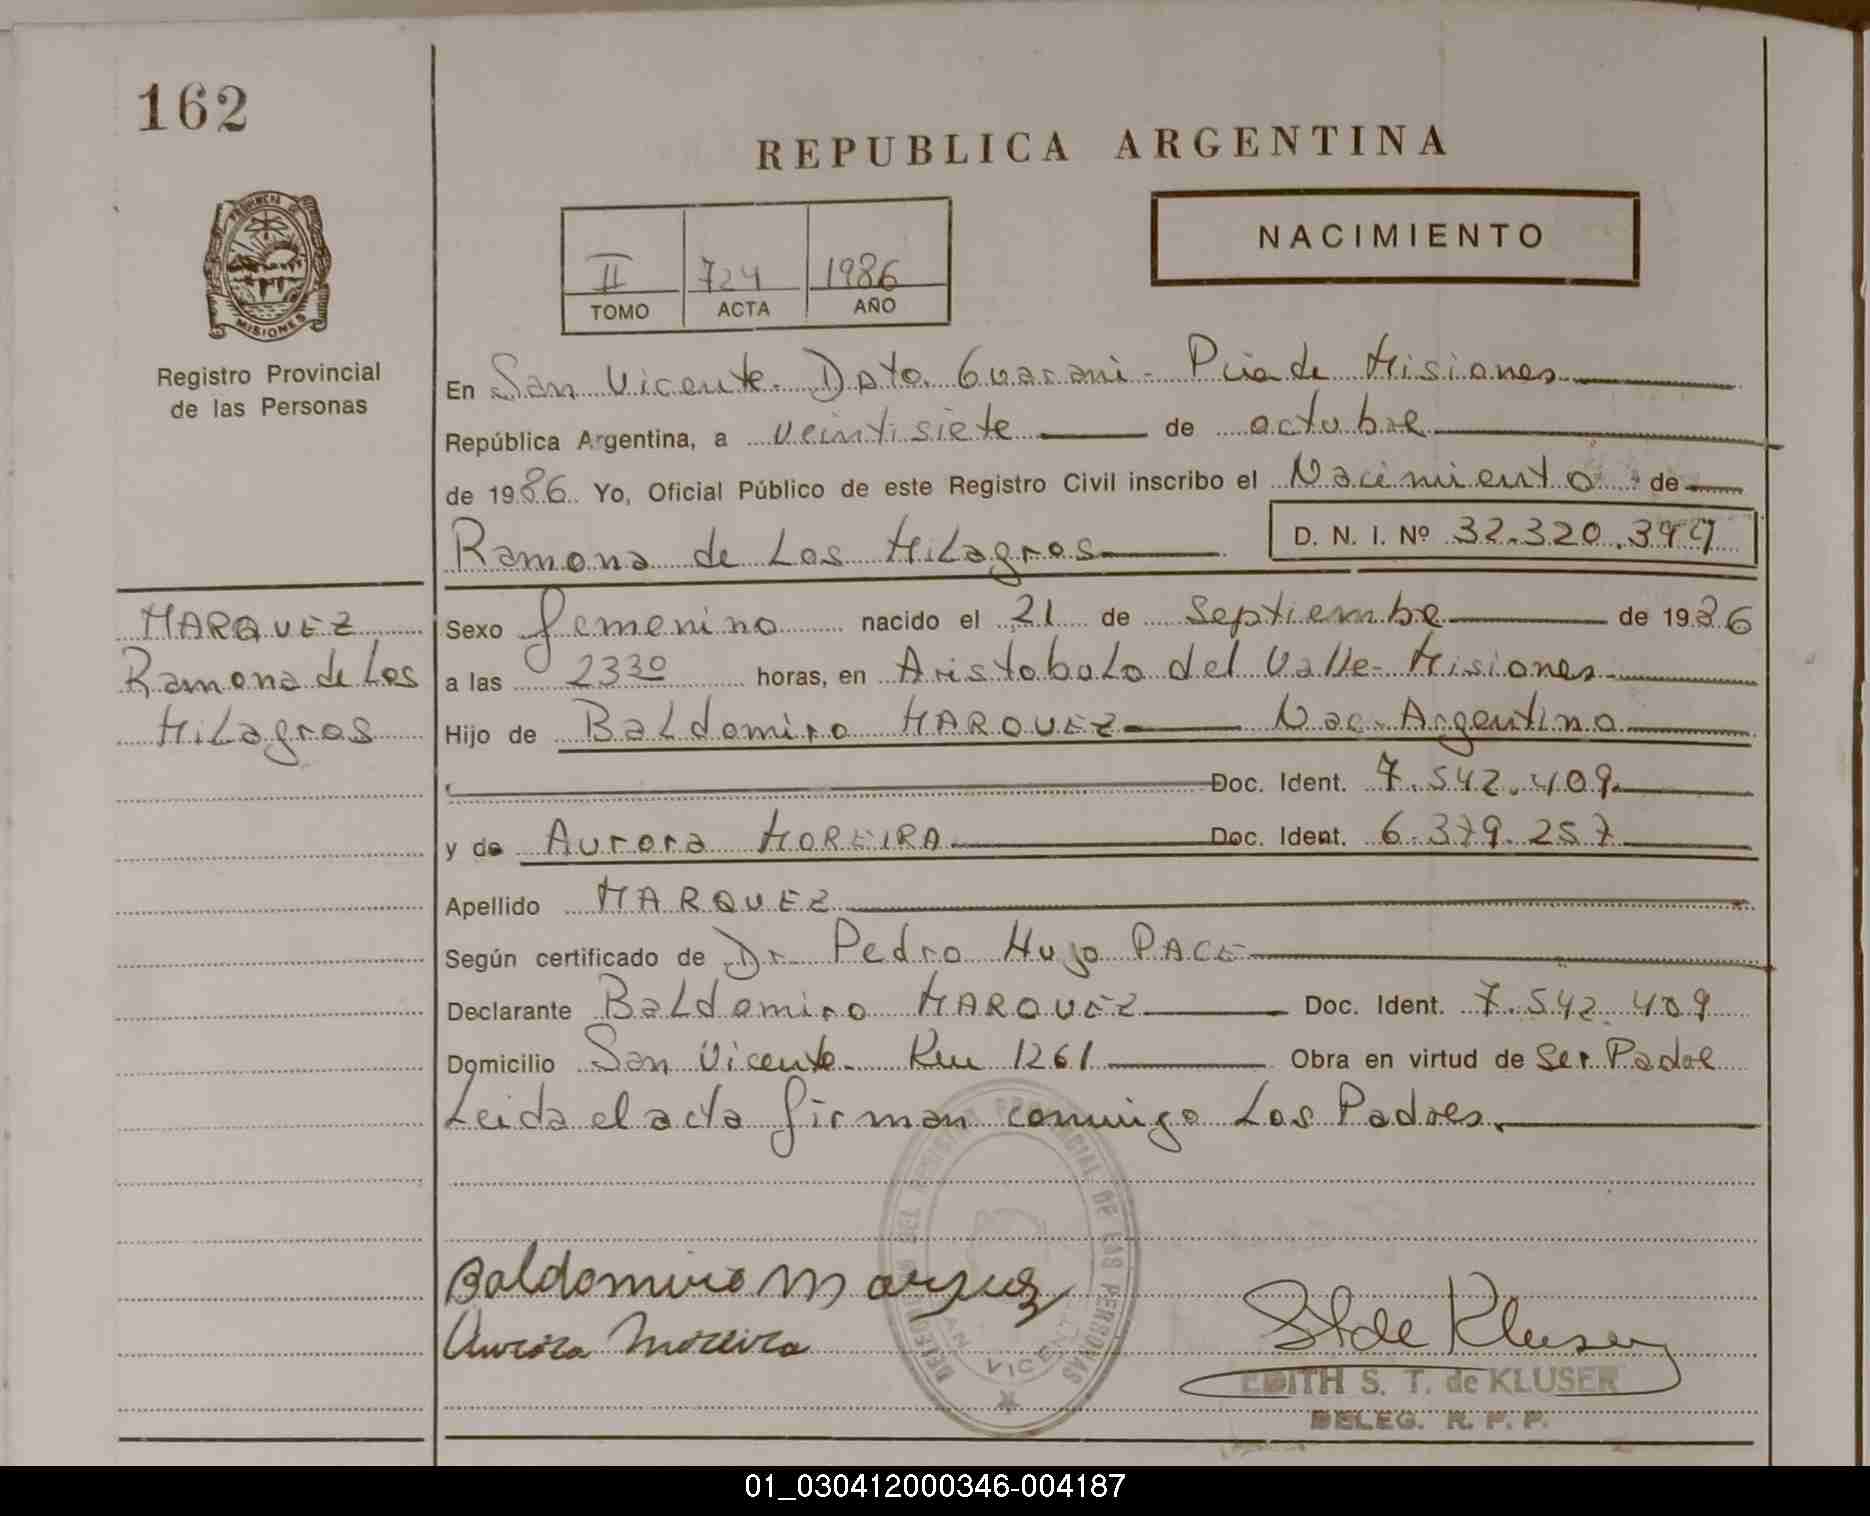 162
REPUBLICA ARGENTINA
PROVINCIA DE
MISIONES
Registro Provincial
de las Personas
NACIMIENTO
II 724 1986
TOMO ACTA AÑO
En San Vicente. Dpto. Guarani - Pcia de Misiones
República Argentina, a veintisiete de octubre
de 1986. Yo, Oficial Público de este Registro Civil inscribo el Nacimiento de
Ramona de Los Milagros D. N. I. Nº 32.320.399
MARQUEZ
Ramona de Los
Milagros
Sexo femenino nacido el 21 de Septiembre de 1986
a las 2330 horas, en Aristobulo del Valle - Misiones
Hijo de Baldomiro MARQUEZ Nac. Argentino
Doc. Ident. 7.542.409
y de Aurora MOREIRA Doc. Ident. 6.379.257
Apellido MARQUEZ
Según certificado de Dr. Pedro Hugo PACE
Declarante Baldomiro MARQUEZ Doc. Ident. 7.542.409
Domicilio San Vicente - Km 1261 Obra en virtud de Ser Padre
Leida el acta firman conmigo Los Padres.
DELEGACION DEL REGISTRO PROVINCIAL DE LAS PERSONAS
SAN VICENTE
Baldomiro Marquez
Aurora Moreira
St de Kluser
EDITH S. T. de KLUSER
DELEG. R. P. P.
01_030412000346-004187